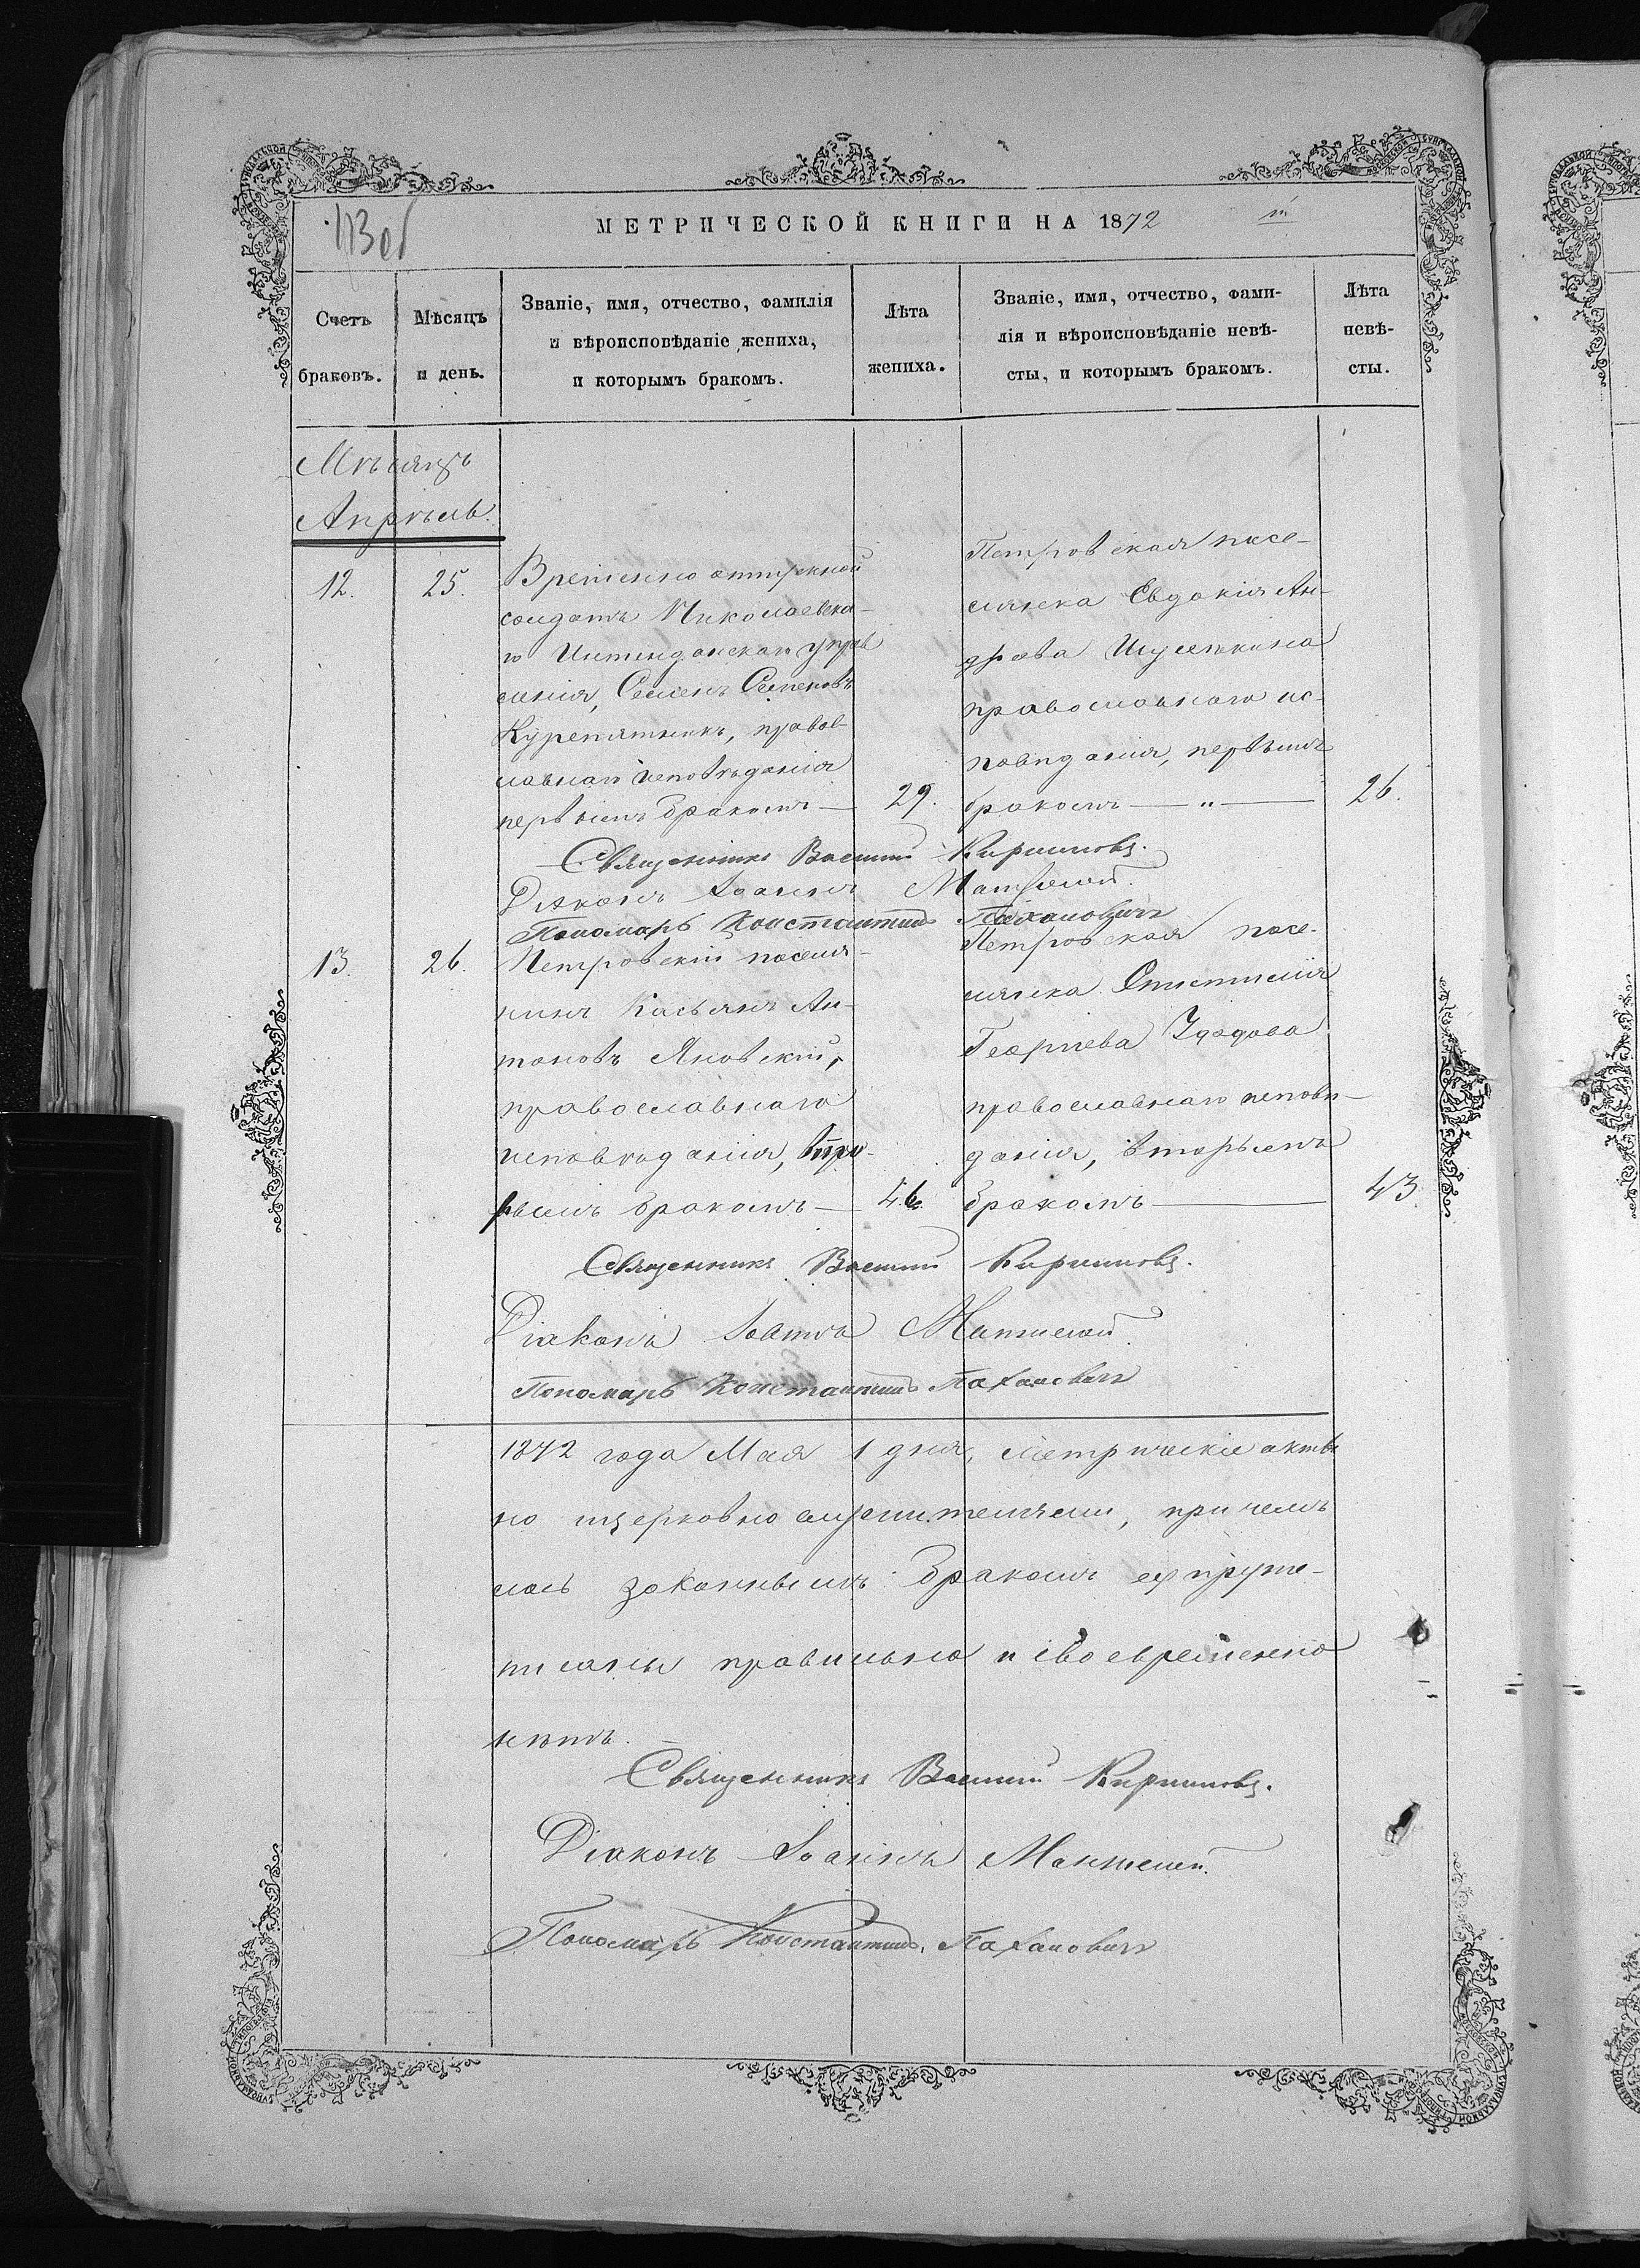 113 об
МЕТРИЧЕСКОЙ КНИГИ НА 1872
Счетъ
браковъ.
Мѣсяцъ
и день.
Званіе, имя, отчество, фамилія
и вѣроисповѣданіе жениха,
и которымъ бракомъ.
Лѣта
жениха.
Званіе, имя, отчество, фами-
лія и вѣроисповѣданіе невѣ-
сты, и которымъ бракомъ.
Лѣта
невѣ-
сты.
Мѣсяцъ
Апрѣль.
12.
25.
Временно отпускной
солдатъ Николаевска-
го Интендантскаго управ
ленія, Семенъ Семеновъ
Курепятникъ, правос-
лавнаго исповѣданія
первымъ бракомъ —
29.
Петровская посе-
лянка Евдокія Ан-
дреева
православнаго ис-
повѣданія, первымъ
бракомъ — " —
26.
Священникъ Василий Кирилловъ.
Діаконъ Іоаннъ
Пономарь Константинъ Пахановичъ
13.
26.
Петровскій поселя-
нинъ Касьянъ Ан-
тоновъ Яновскій,
православнаго
исповѣданія, вто-
рымъ бракомъ —
46.
Петровская посе-
лянка
Георгіева
православнаго исповѣ-
данія, вторымъ
бракомъ —
43.
Священникъ Василий Кирилловъ.
Діаконъ Іоаннъ
Пономарь Константинъ Пахановичъ
1872 года Мая 1 дня, метрическіе акты
но церковно служителями, при чемъ
лось законнымъ бракомъ
писаны правильно и своевременно
нѣтъ.
Священникъ Василий Кирилловъ.
Діаконъ Іоаннъ
Пономарь Константинъ Пахановичъ